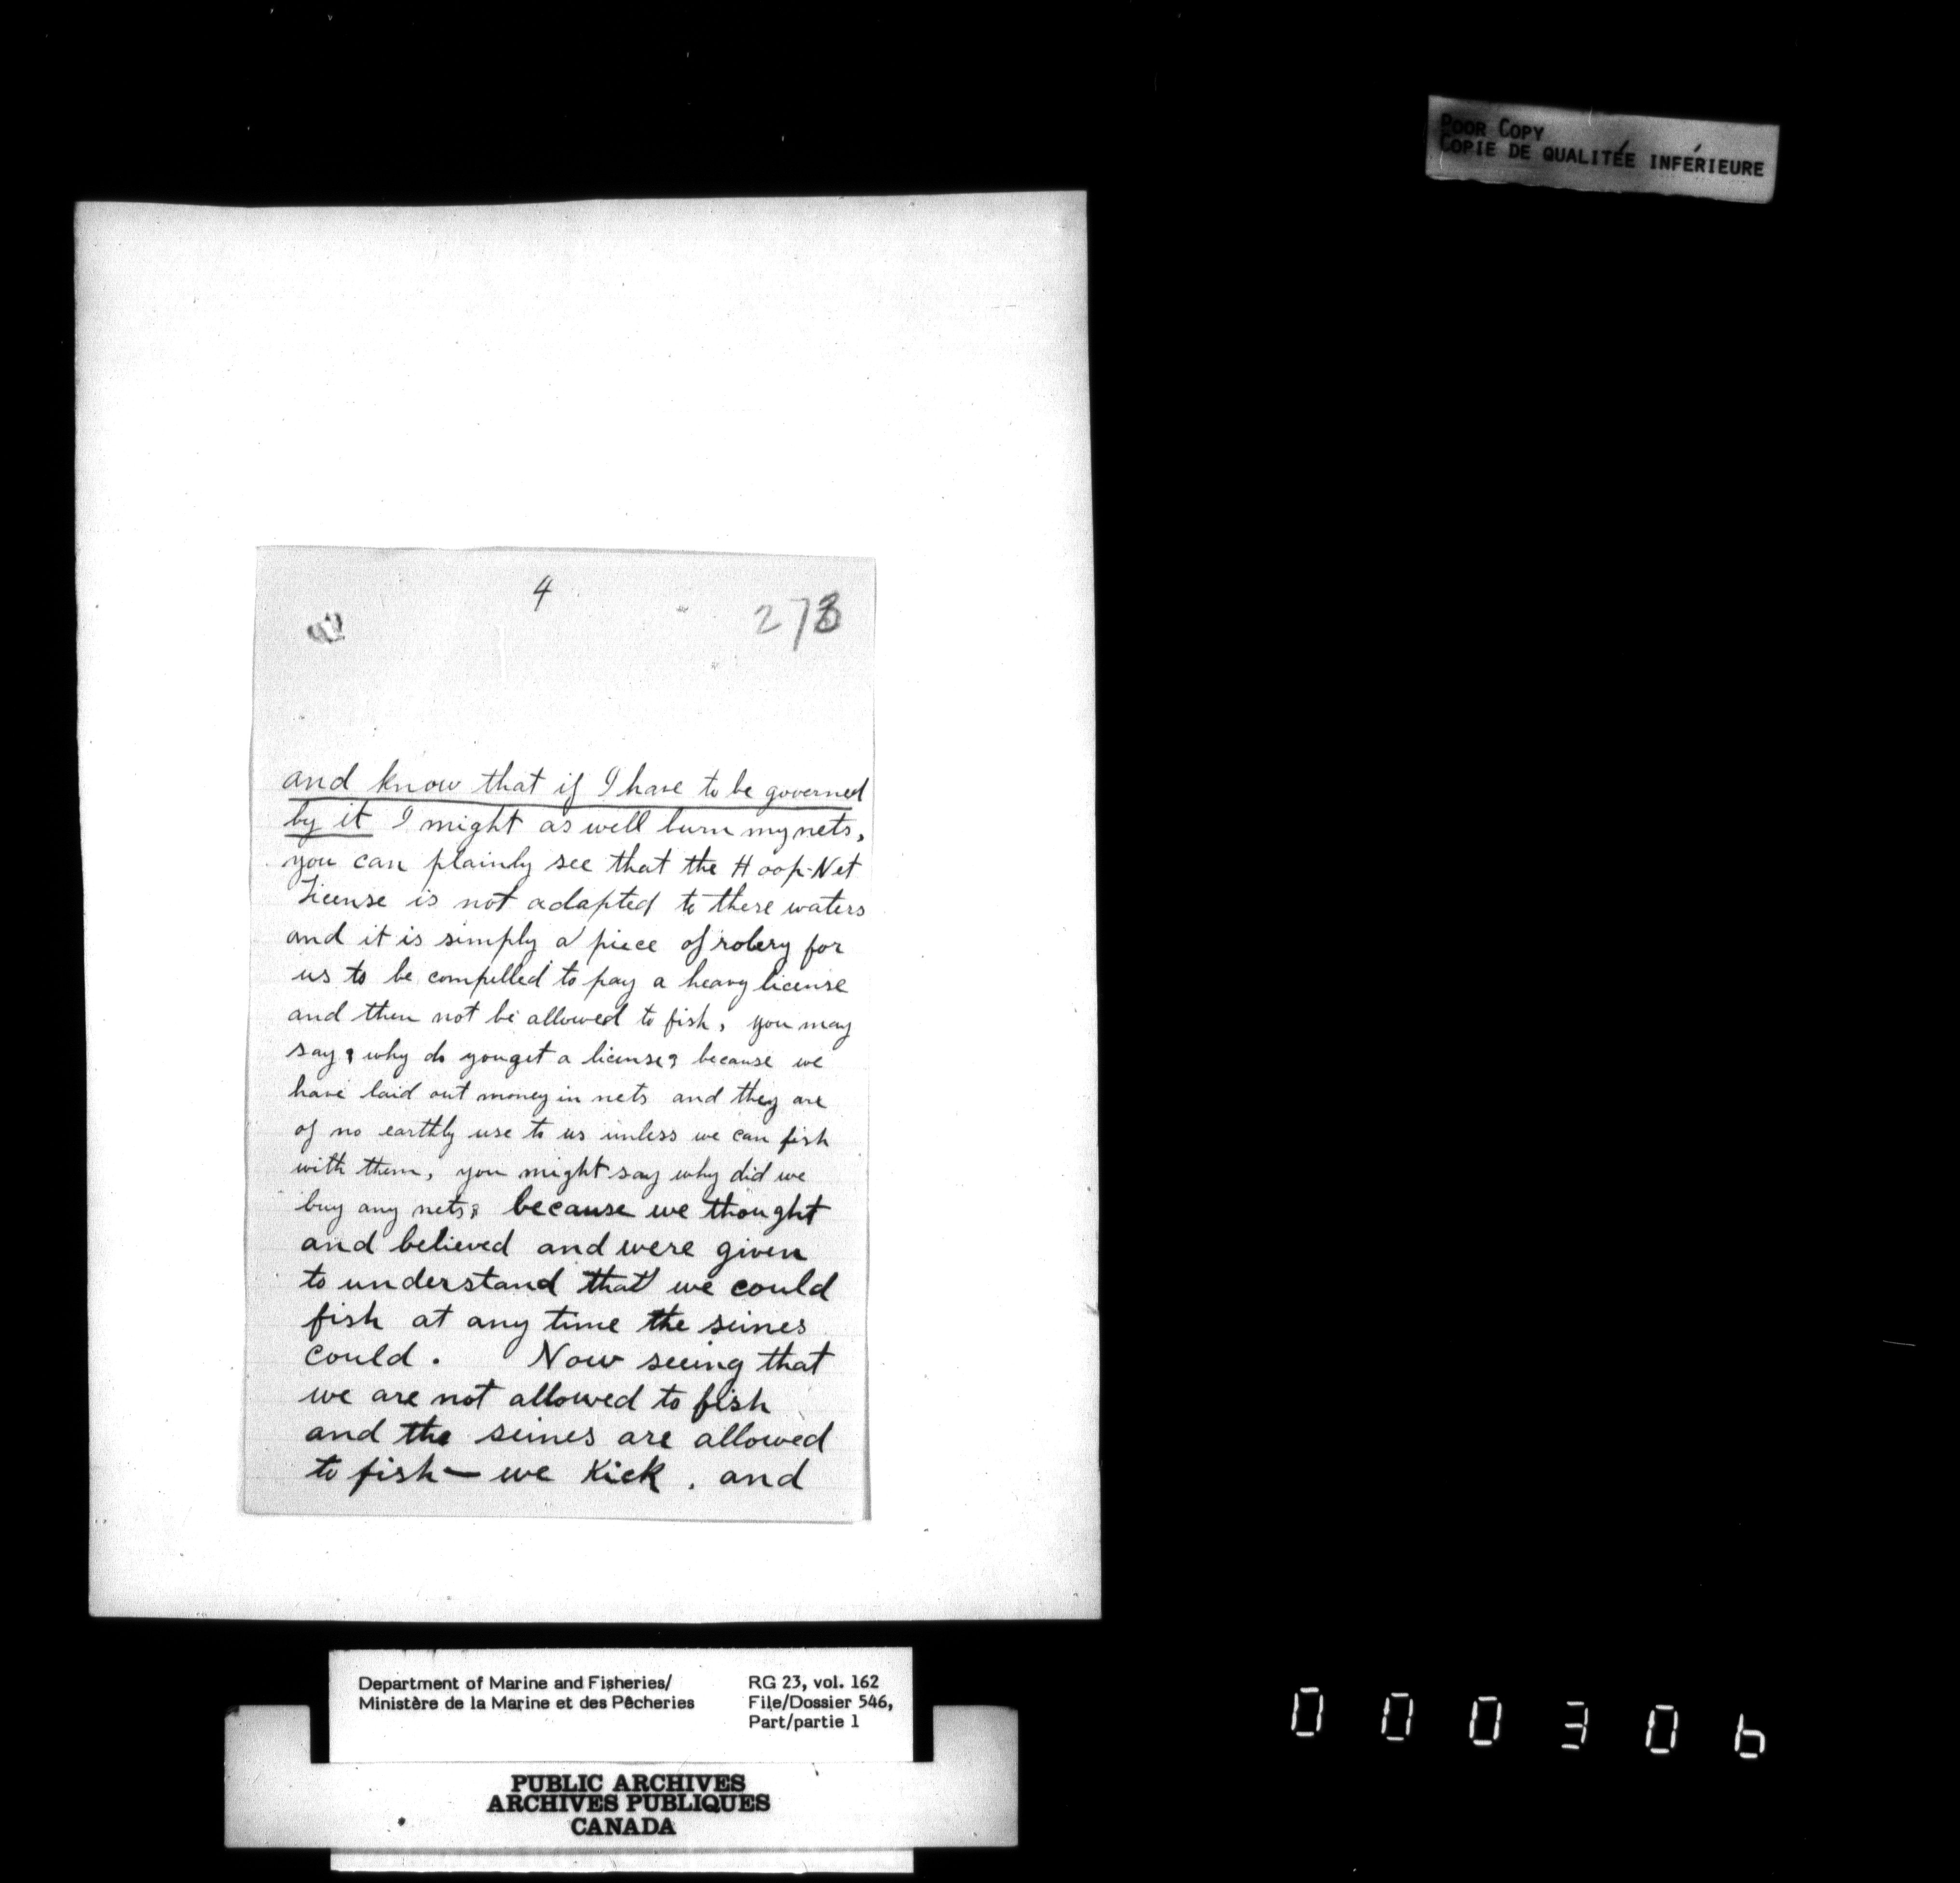 POOR COPY
COPIE DE QUALITÉE INFÉRIEURE
4
273
and know that if I have to be governed
by it I might as well burn my nets,
you can plainly see that the Hoop-Net
License is not adapted to these waters
and it is simply a piece of robery for
us to be compelled to pay a heavy license
and then not be allowed to fish, you may
say? why do you get a license? because we
have laid out money in nets and they are
of no earthly use to us unless we can fish
with them, you might say why did we
buy any nets? because we thought
and believed and were given
to understand that we could
fish at any time the seines
could. Now seeing that
we are not allowed to fish
and the seines are allowed
to fish — we kick. and
Department of Marine and Fisheries/
Ministère de la Marine et des Pêcheries
RG 23, vol. 162
File/Dossier 546,
Part/partie 1
PUBLIC ARCHIVES
ARCHIVES PUBLIQUES
CANADA
000306